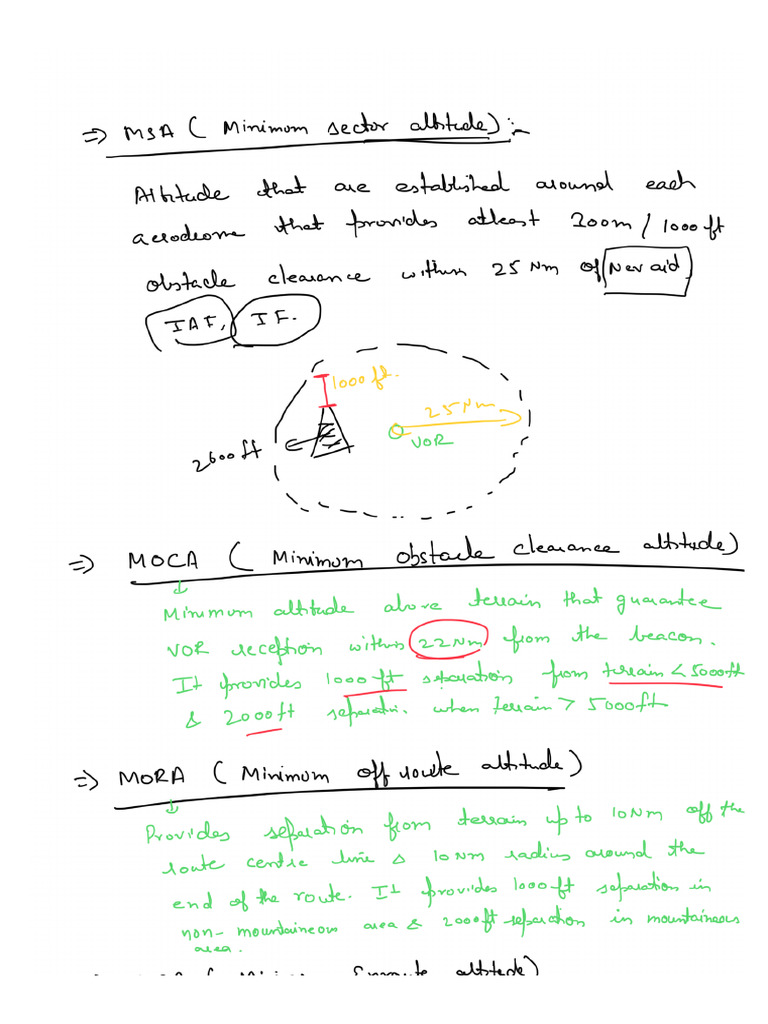 => MSA ( Minimum sector altitude) :-
Altitude that are established around each
aerodrome that provides atleast 300m / 1000 ft
obstacle clearance within 25 Nm of Nav aid
IAF, IF.
1000 ft.
25 Nm
VOR
2600 ft
=> MOCA ( Minimum obstacle clearance altitude)
Minimum altitude above terrain that guarantee
VOR reception within 22 Nm from the beacon.
It provides 1000 ft separation from terrain < 5000 ft
& 2000 ft separatin. when terrain > 5000 ft
=> MORA ( Minimum off route altitude)
Provides separation from terrain up to 10 Nm off the
route centre line & 10 Nm radius around the
end of the route. It provides 1000 ft separation in
non-mountaineous area & 2000 ft separation in mountaineous
area.
altitude)